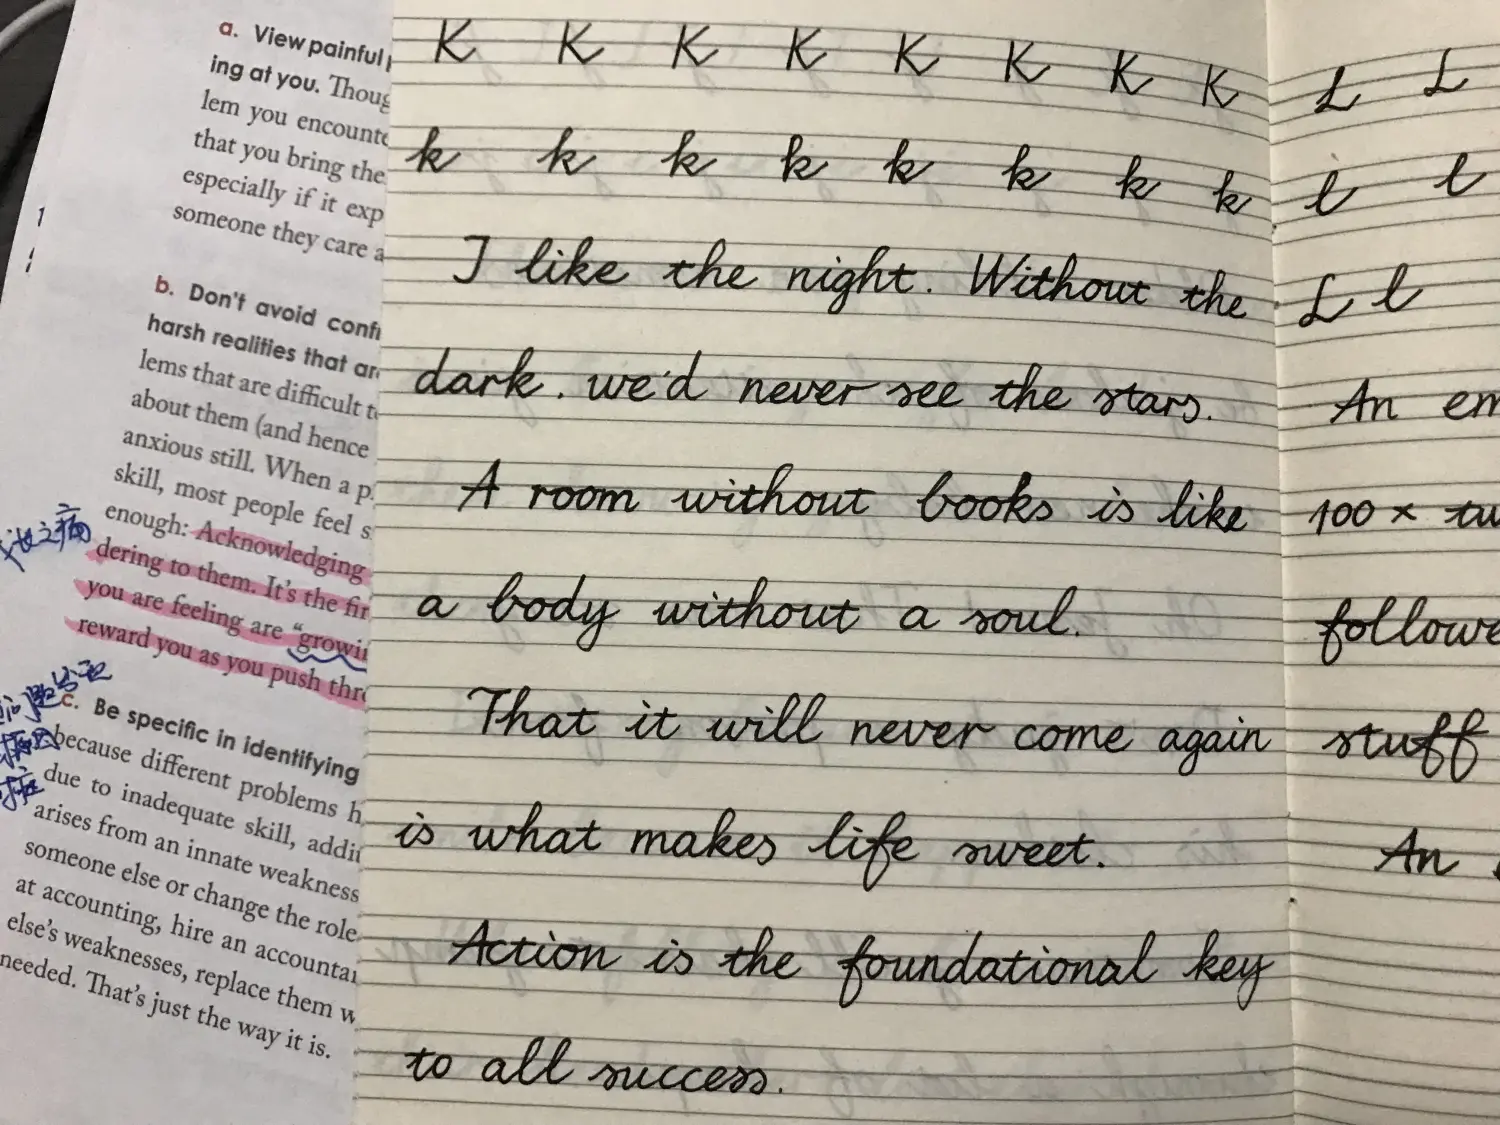 a. View painful
ing at you. Thoug
lem you encounte
that you bring the
especially if it exp
someone they care a
b. Don't avoid conf
harsh realities that ar
lems that are difficult t
about them (and hence
anxious still. When a p
skill, most people feel s
enough: Acknowledging
dering to them. It's the fir
you are feeling are "growi
reward you as you push thr
c. Be specific in identifying
because different problems h
due to inadequate skill, addi
arises from an innate weakness
someone else or change the role
at accounting, hire an accountan
else's weaknesses, replace them w
needed. That's just the way it is.
K K K K K K K K
k k k k k k k k
I like the night. Without the
dark. we'd never see the stars.
A room without books is like
a body without a soul.
That it will never come again
is what makes life sweet.
Action is the foundational key
to all success.
L L
l l
L l
An em
100 × tw
followe
stuff
An